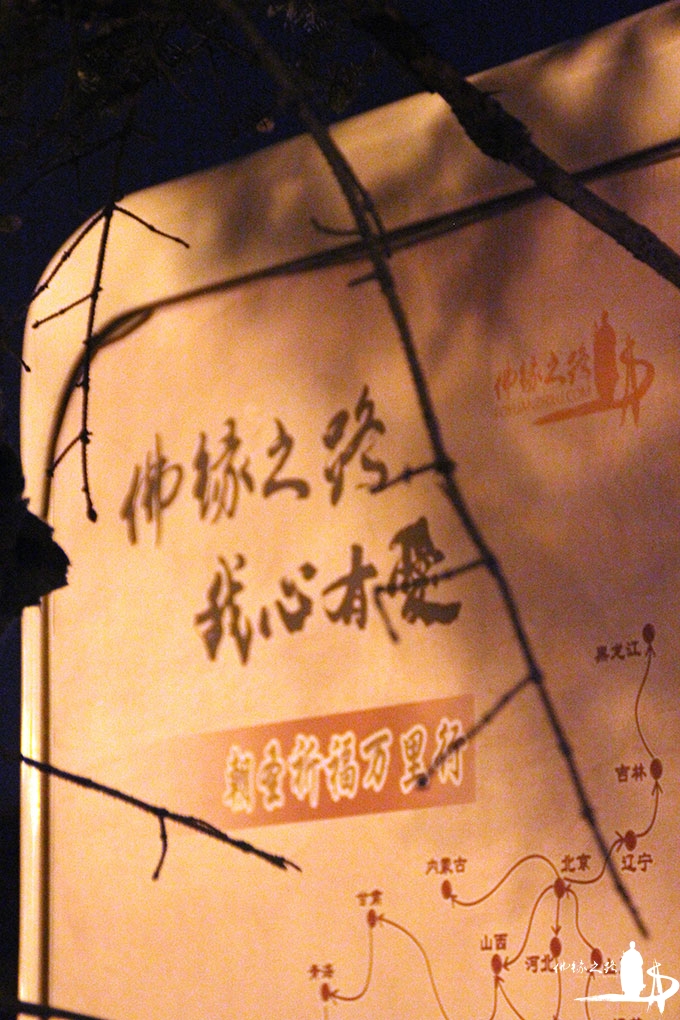 佛缘之路
佛缘之路
我心有愛
朝圣祈福万里行
黑龙江
吉林
辽宁
北京
内蒙古
甘肃
山西
河北
青海
佛缘之路